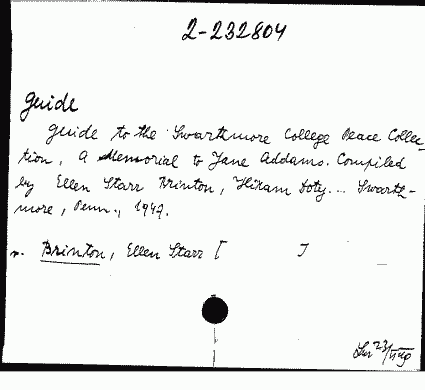 2-232804
Guide
Guide to the Swarthmore College Peace Collec-
tion, a Memorial to Jane Addams. Compiled
by Ellen Starr Brinton, Hiram Doty... Swarth-
more, Penn., 1947.
r. Brinton, Ellen Starr [ ]